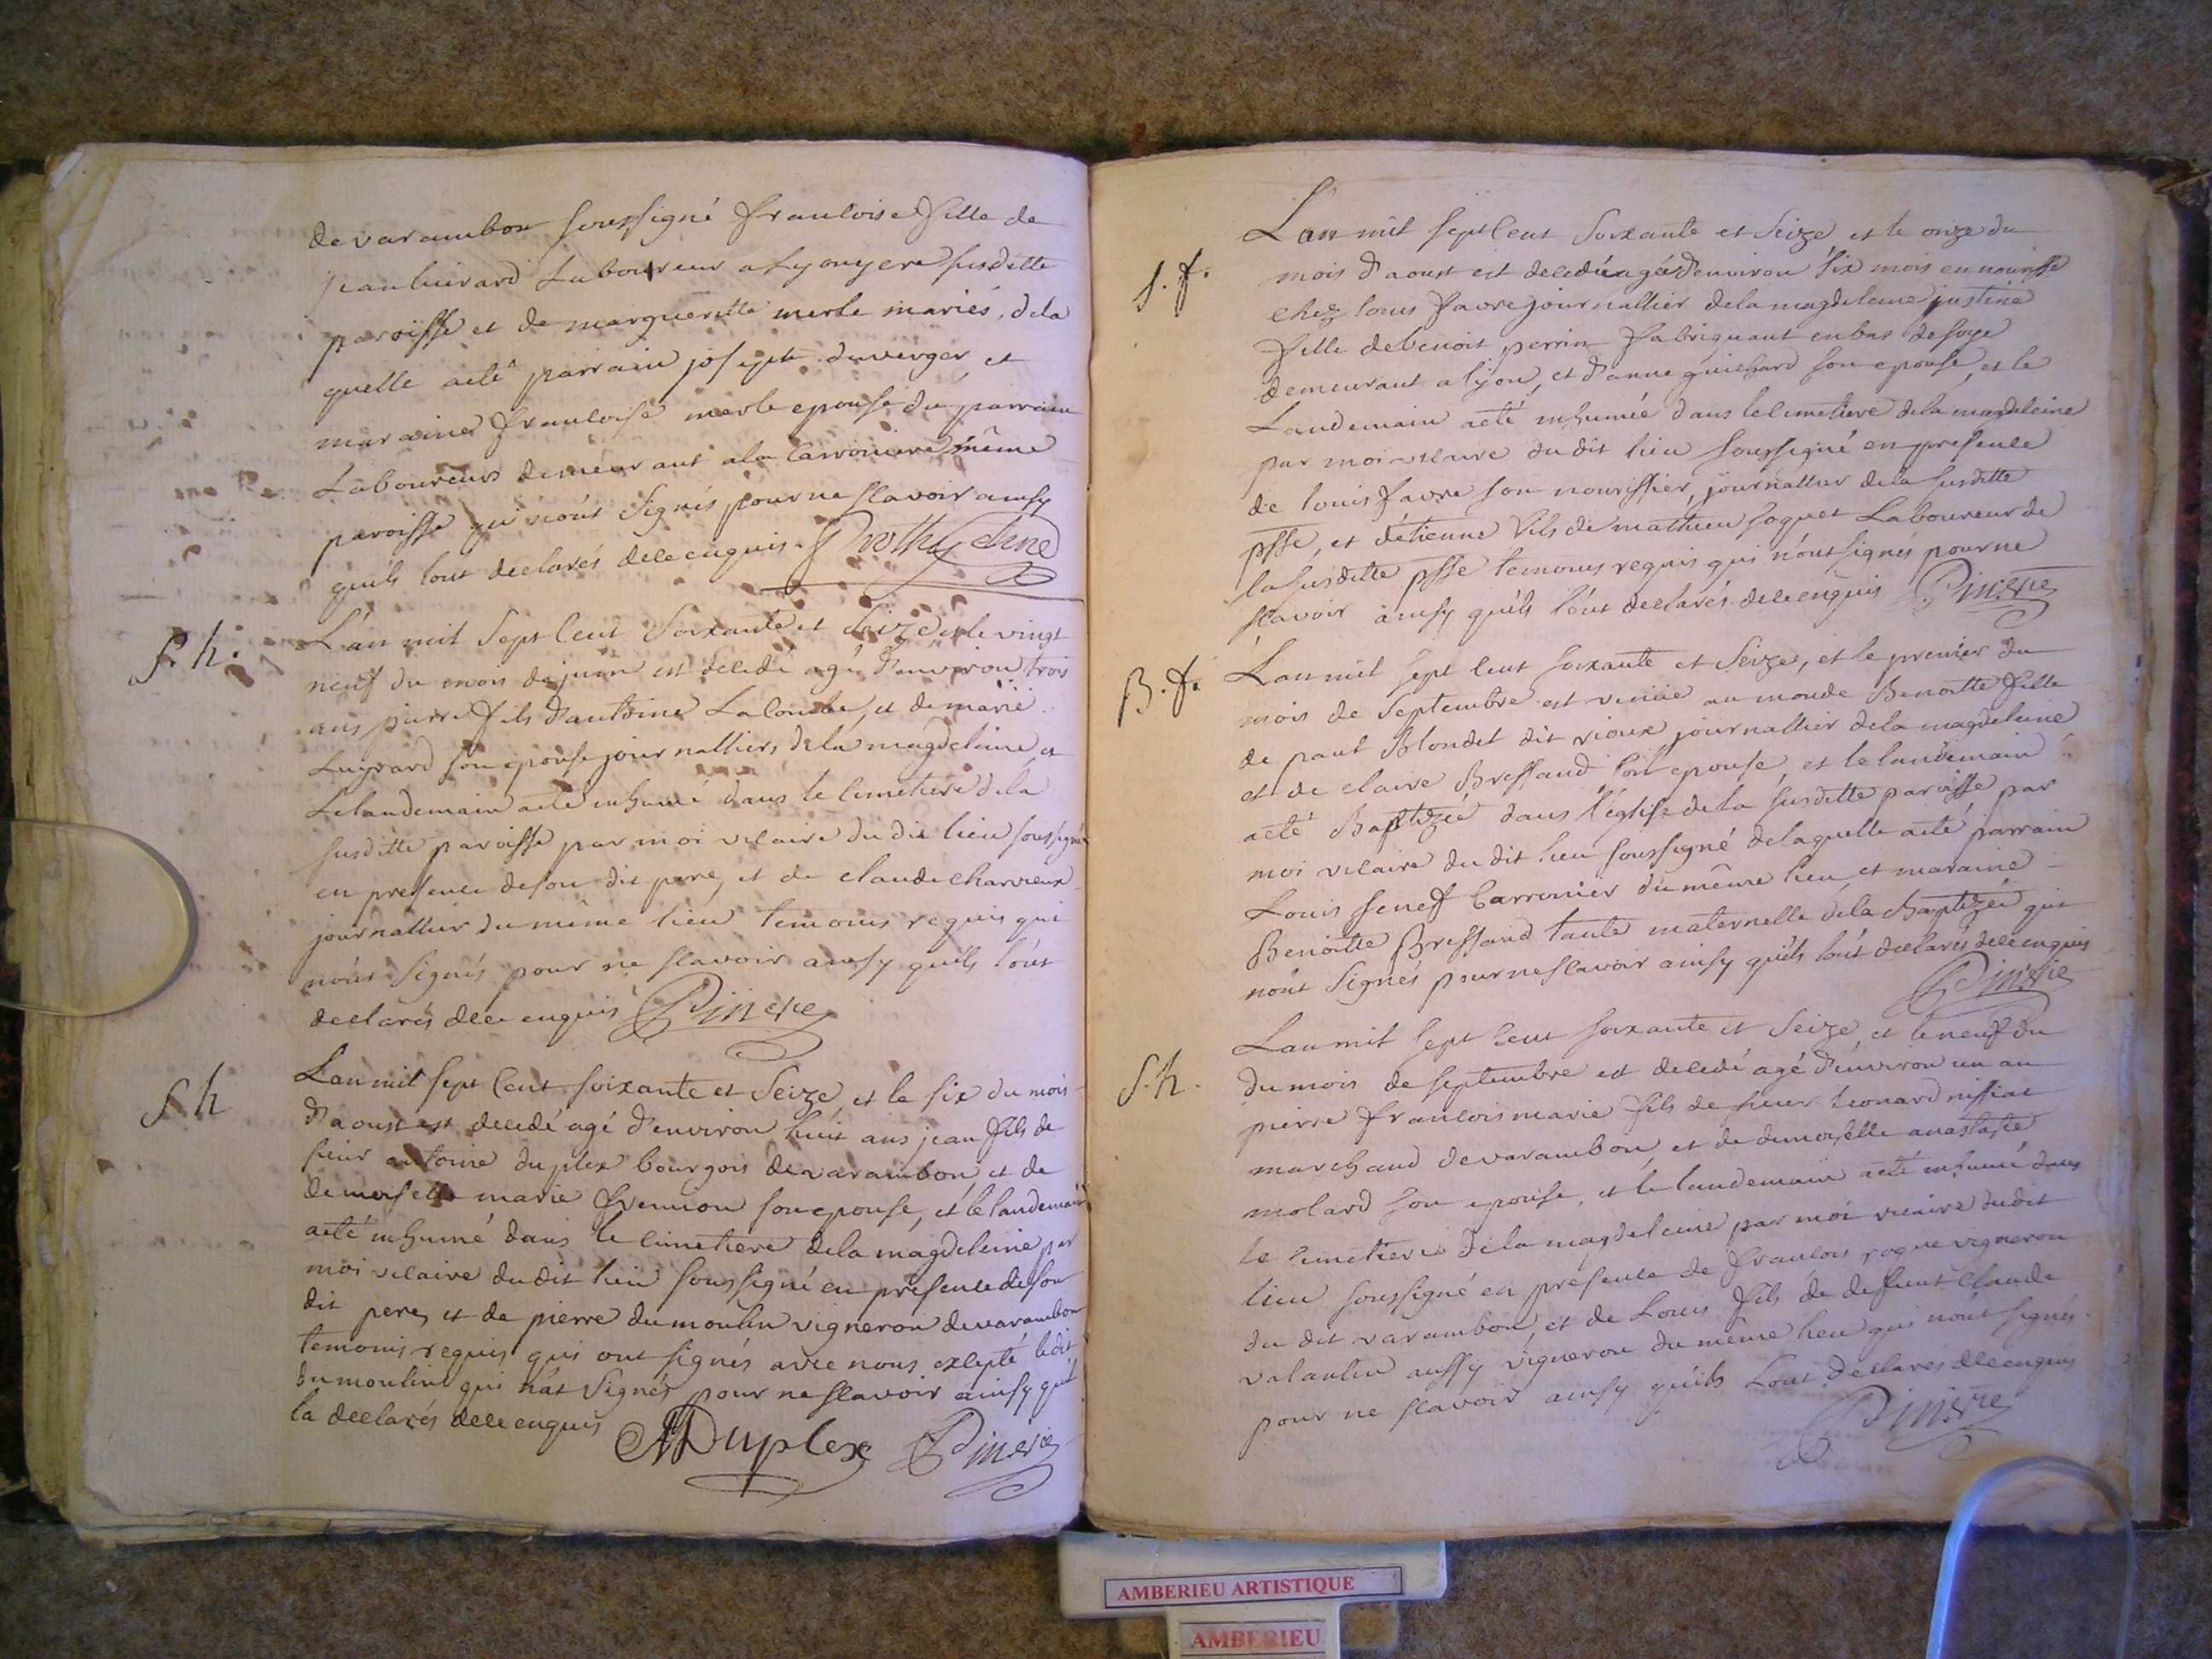 de varambon soussigné francoise fille de
jean huvard Laboureur a Lyonyere susditte
paroisse et de margueritte merle mariés, de la
quelle aeté parrain joseph duverger, et
maraine francoise merle epouse du parrain
Laboureurs demeurant a la Carroniere même
paroisse qui n'ont signés pour ne scavoir ainsy
quils lont declarés de ce enquis.
S. h.
L'an mil sept cent soixante et seize et le vingt
neuf du mois de juin est decedé agé d'environ trois
ans pierre fils d'antoine Lacombe, et de marie
Luyrard son epouse journalliers de la magdeleine, et
Le landemain aeté inhumé dans le cimetiere de la
susditte paroisse par moi vicaire du dit lieu soussigné
en presence de son dit pere, et de claude charvieux
journallier du même lieu temoins requis qui
n'ont signés pour ne scavoir ainsy quils l'ont
declarés de ce enquis Pin vre
S. h
L'an mil sept cent soixante et seize et le six du mois
d'aoust est decedé agé d'environ huit ans jean fils de
sieur antoine duplex bourgois de varambon, et de
demoiselle marie fremion son epouse, et le landemain
aeté inhumé dans le cimetiere de la magdeleine par
moi vicaire du dit lieu soussigné en presence de son
dit pere, et de pierre dumoulin vigneron de varambon
temoins requis qui ont signés avec nous excepté le dit
dumoulin qui n'at signés pour ne scavoir ainsy quil
la declarés de ce enquis ADuplex Pin vre
S. f.
L'an mil sept cent soixante et seize et le onze du
mois d'aoust est decedée agée d'environ six mois en nourisse
chez louis favre journallier de la magdeleine justine
fille de benoit perrin fabriquant en bas de soye
demeurant a lyon, et d'anne guichard son epouse, et le
Landemain aeté inhumée dans le cimetiere de la magdeleine
par moi vicaire du dit lieu soussigné en presence
de louis favre son nourissier, journallier de la susditte
psse, et d'etienne fils de mathieu soquet Laboureur de
la susditte psse temoins requis qui n'ont signés pour ne
scavoir ainsy quils l'ont declarés de ce enquis Pin vre
B. f.
L'an mil sept cent soixante et seize, et le premier du
mois de septembre est venüe au monde Benoitte fille
de paul Blondet dit vioux journallier de la magdeleine
et de claire Bressand son epouse, et le landemain
aeté Baptizée dans l'église de la susditte paroisse par
moi vicaire du dit lieu soussigné de laquelle aeté parrain
Louis seneff Carronier du même lieu, et maraine
Benoitte Bressand tante maternelle de la baptizée qui
n'ont signés pour ne scavoir ainsy quils l'ont declarés de ce enquis
Pin vre
S. h.
L'an mil sept cent soixante et seize, et le neuf du
du mois de septembre est decedé agé d'environ un an
pierre francois marie fils de sieur leonard niffiat
marchand de varambon, et de demoiselle anastasie
molard son epouse, et le landemain aeté inhumé dans
le cimetiere de la magdeleine par moi vicaire du dit
lieu soussigné en présence de francois roque vigneron
du dit varambon, et de Louis fils de deffunt claude
valantin aussy vigneron du même lieu qui n'ont signés
pour ne scavoir ainsy quils L'ont declarés de ce enquis
Pin vre
AMBERIEU ARTISTIQUE
AMBERIEU